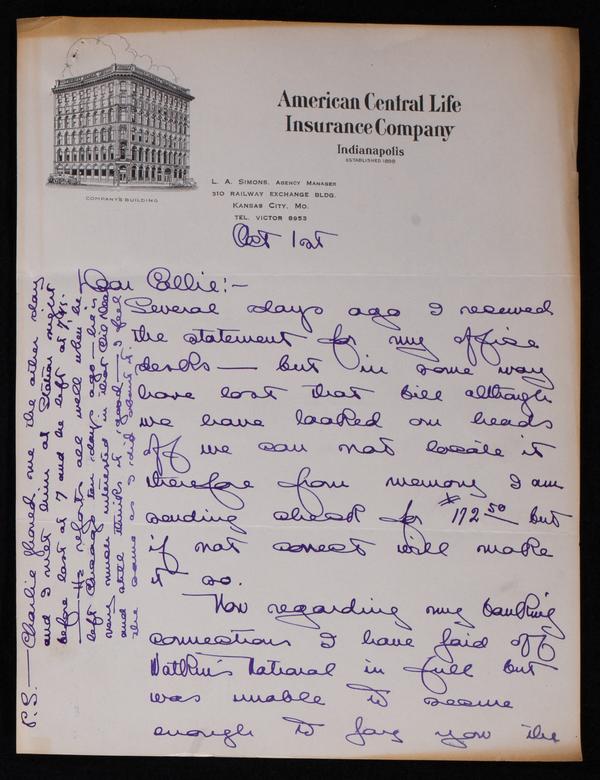 American Central Life
Insurance Company
Indianapolis
ESTABLISHED 1899
COMPANY'S BUILDING
L. A. SIMONS, AGENCY MANAGER
310 RAILWAY EXCHANGE BLDG.
KANSAS CITY, MO.
TEL. VICTOR 8953
Oct 1st
Dear Ollie:-
Several days ago I received
the statement for my office
desks — but in some way
have lost that bill although
we have looked our heads
off we can not locate it
therefore from memory I am
sending check for $172.50 but
if not correct will make
it so.
Now regarding my banking
connections I have paid off
Watkin's National in full but
was unable to secure
enough to pay you the
P.S. — Charlie phoned me the other day
and I met him at Station night
before last at 7 and he left at 7:45.
— He reports all well when he
left Chicago ten days ago — he is
very much interested in that Oil Deal
and still thinks it good — I feel
the same as I did about it.